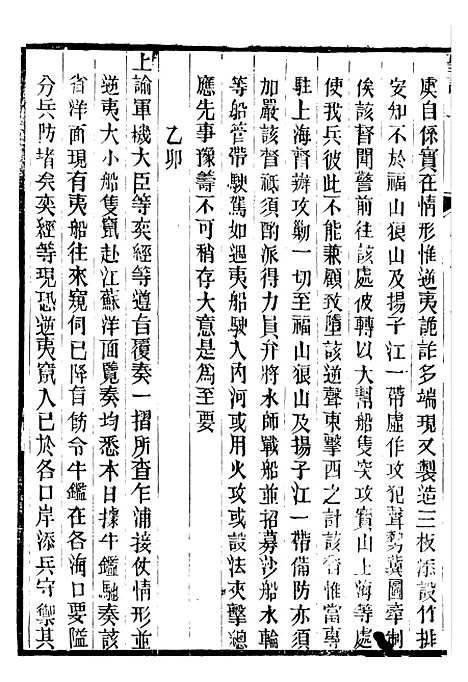 虞自係實在情形惟逆夷詭詐多端現又製造三板添設竹排
安知不於福山狼山及揚子江一帶虛作攻犯聲勢冀圖牽制
俟該督聞警前往該處彼轉以大幫船隻突攻寶山上海等處
使我兵彼此不能兼顧致墮該逆聲東擊西之計該督惟當專
駐上海督辦攻勦一切至福山狼山及揚子江一帶備防亦須
加嚴該督祗須酌派得力員弁將水師戰船並招募沙船水輪
等船管帶駛駕如遇夷船駛入內河或用火攻或設法夾擊總
應先事豫籌不可稍存大意是為至要
乙卯
上諭軍機大臣等奕經等遵旨覆奏一摺所查乍浦接仗情形並
逆夷大小船隻竄赴江蘇洋面覽奏均悉本日據牛鑑馳奏該
省洋面現有夷船往來窺伺已降旨飭令牛鑑在各海口要隘
分兵防堵矣奕經等現恐逆夷竄入已於各口岸添兵守禦其